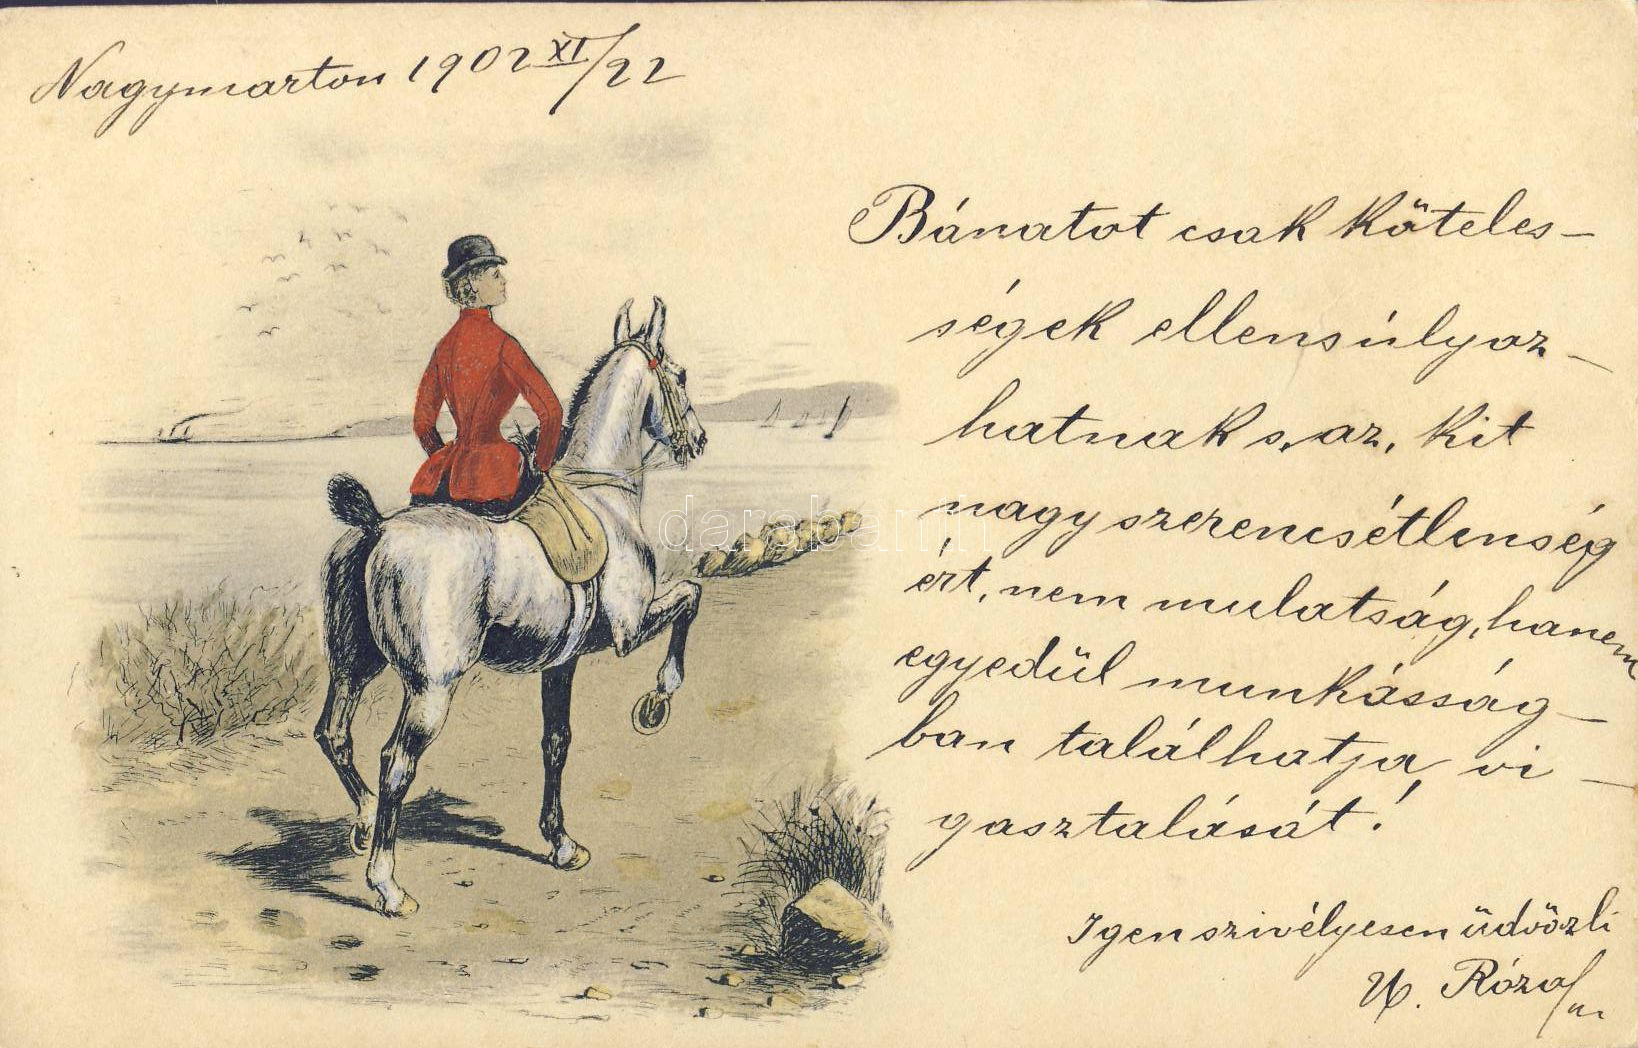 Nagymarton 1902 XI/22
Bánatot csak köteles-
ségek ellensúlyoz-
hatnak s, az, kit
nagy szerencsétlenség
ért, nem mulatság, hanem
egyedül munkásság-
ban találhatja vi-
gasztalását!
Igen szivélyesen üdvözli
Róza
darabanth